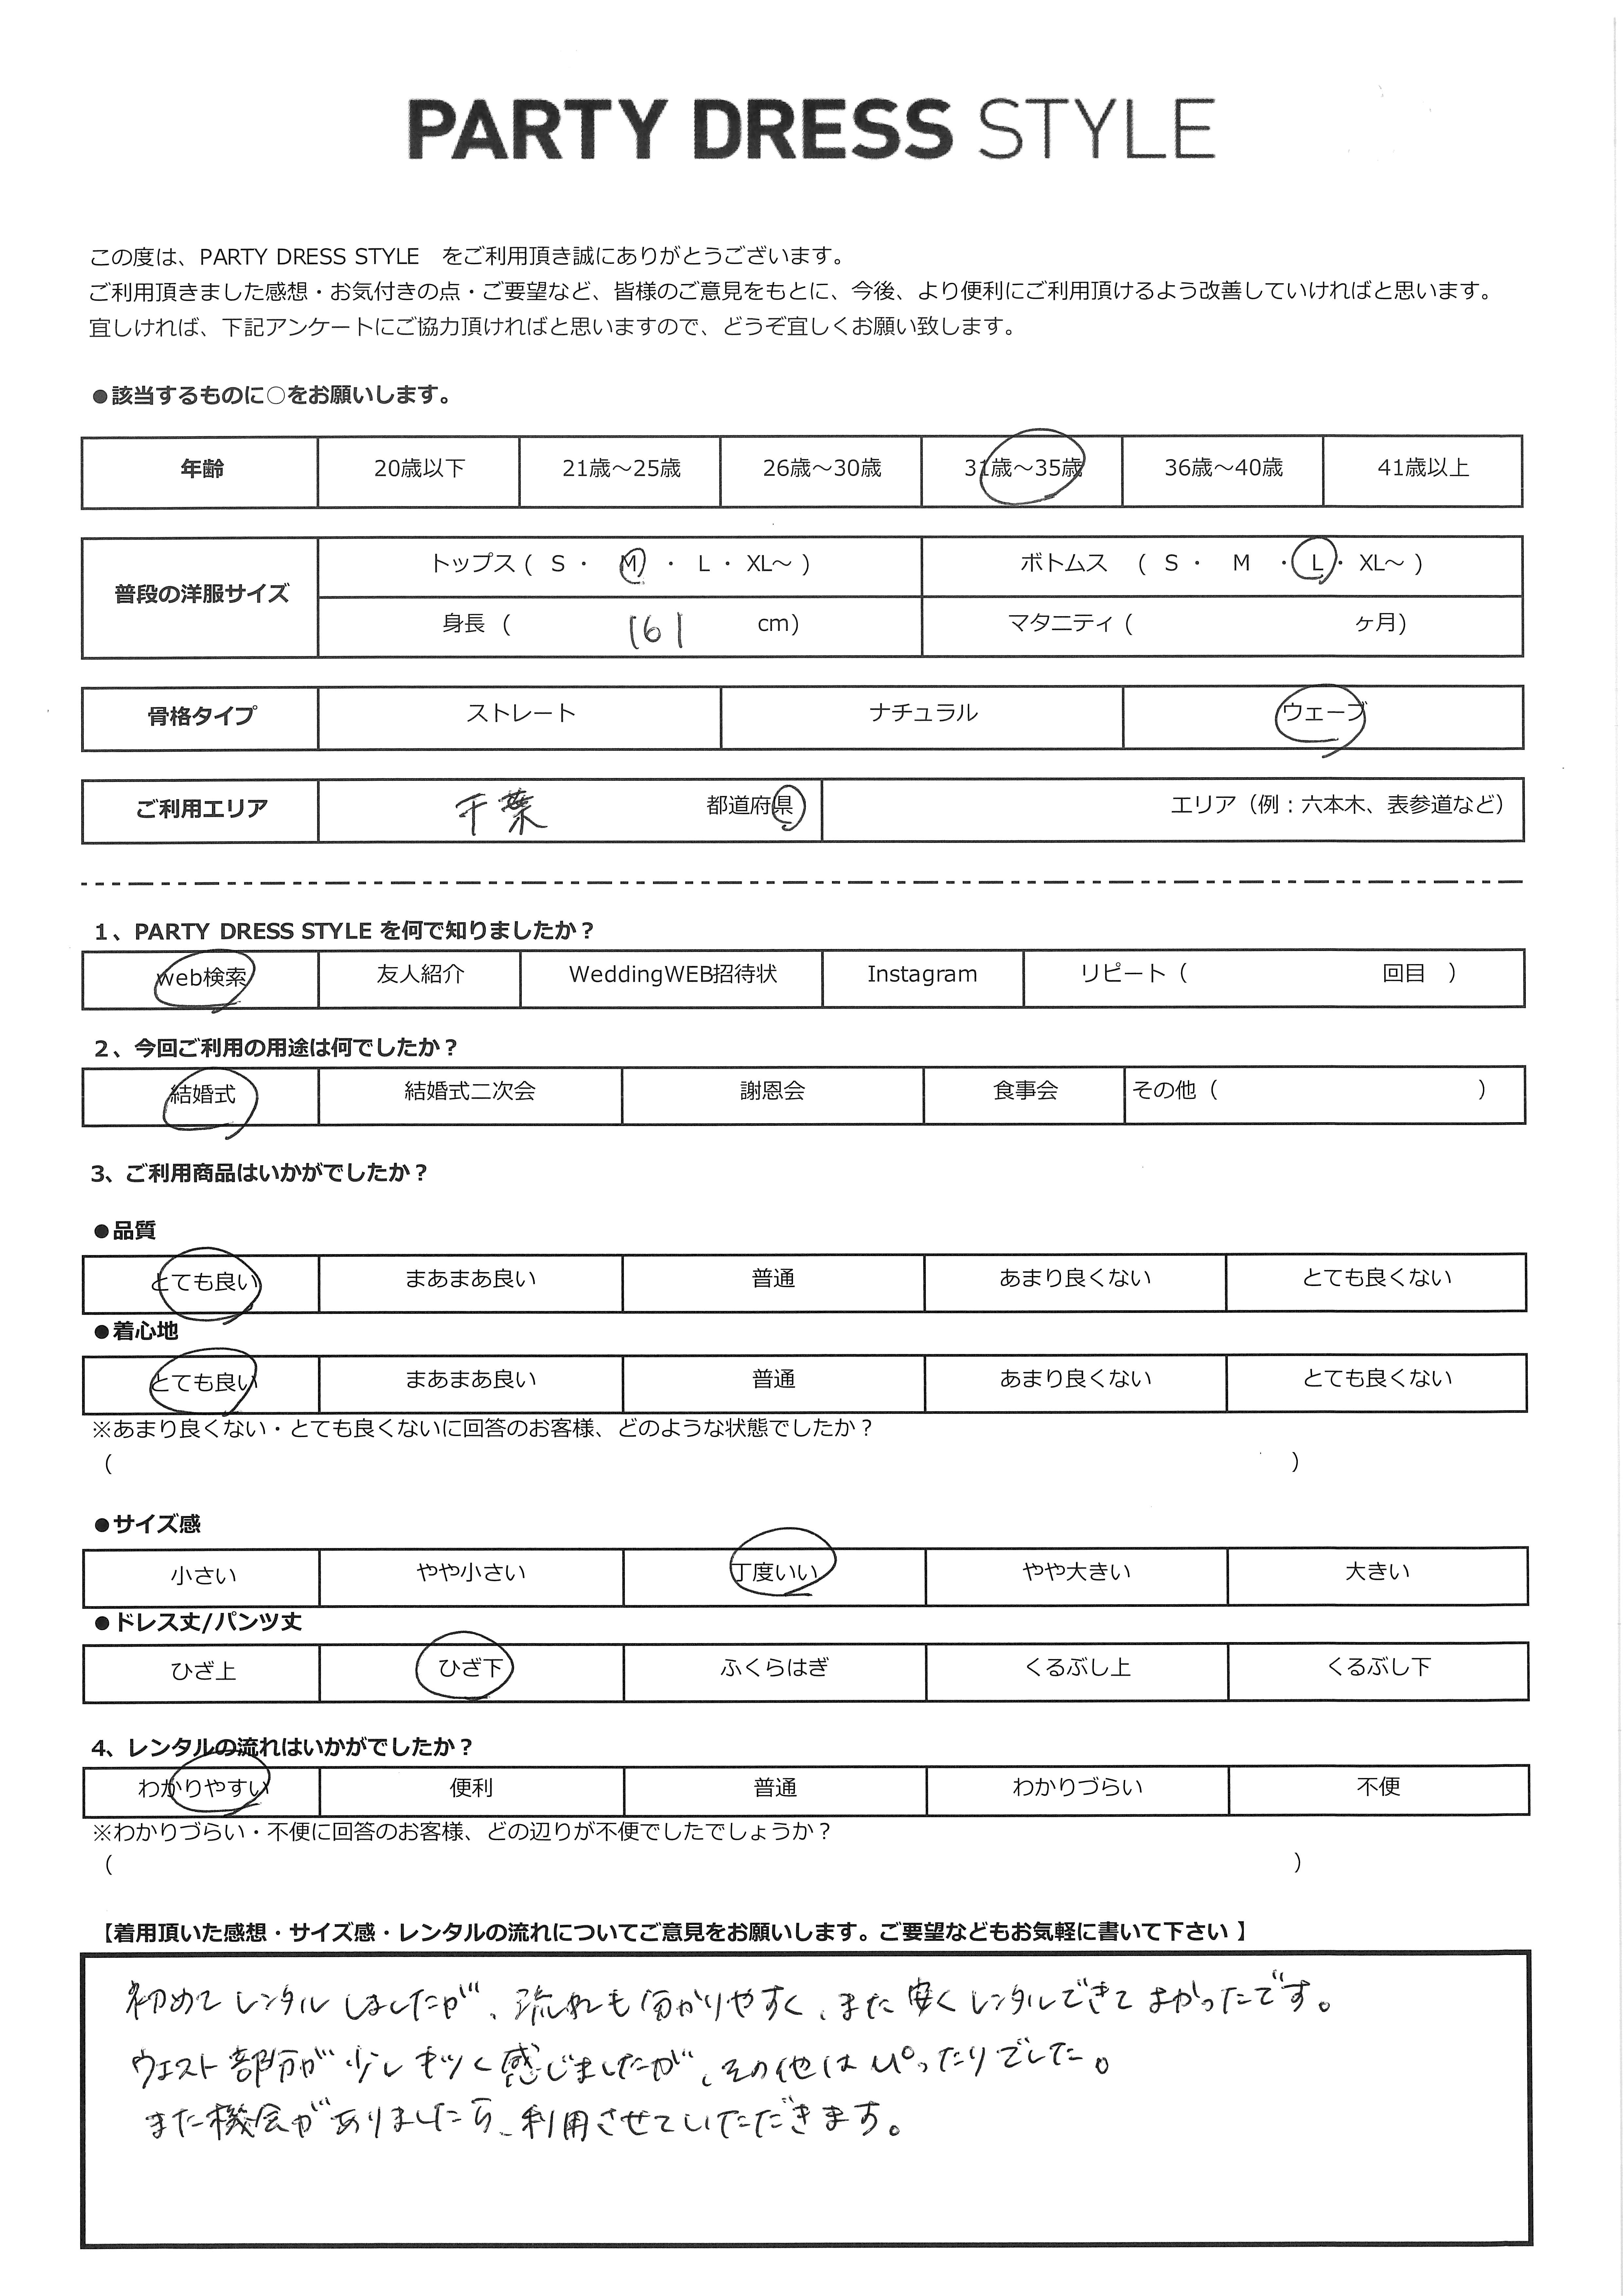 PARTY DRESS STYLE
この度は、PARTY DRESS STYLE　をご利用頂き誠にありがとうございます。
ご利用頂きました感想・お気付きの点・ご要望など、皆様のご意見をもとに、今後、より便利にご利用頂けるよう改善していければと思います。
宜しければ、下記アンケートにご協力頂ければと思いますので、どうぞ宜しくお願い致します。
●該当するものに○をお願いします。
年齢 20歳以下 21歳～25歳 26歳～30歳 31歳～35歳 36歳～40歳 41歳以上
普段の洋服サイズ
トップス ( S ・ M ・ L ・ XL～ ) ボトムス ( S ・ M ・ L ・ XL～ )
身長 ( 161 cm) マタニティ ( ヶ月)
骨格タイプ ストレート ナチュラル ウェーブ
ご利用エリア 千葉 都道府県 エリア（例：六本木、表参道など）
1、PARTY DRESS STYLE を何で知りましたか？
web検索 友人紹介 WeddingWEB招待状 Instagram リピート（ 回目 ）
2、今回ご利用の用途は何でしたか？
結婚式 結婚式二次会 謝恩会 食事会 その他（ ）
3、ご利用商品はいかがでしたか？
●品質
とても良い まあまあ良い 普通 あまり良くない とても良くない
●着心地
とても良い まあまあ良い 普通 あまり良くない とても良くない
※あまり良くない・とても良くないに回答のお客様、どのような状態でしたか？
( )
●サイズ感
小さい やや小さい 丁度いい やや大きい 大きい
●ドレス丈/パンツ丈
ひざ上 ひざ下 ふくらはぎ くるぶし上 くるぶし下
4、レンタルの流れはいかがでしたか？
わかりやすい 便利 普通 わかりづらい 不便
※わかりづらい・不便に回答のお客様、どの辺りが不便でしたでしょうか？
( )
【着用頂いた感想・サイズ感・レンタルの流れについてご意見をお願いします。ご要望などもお気軽に書いて下さい 】
初めてレンタルしましたが、流れも分かりやすく、また安くレンタルできてよかったです。
ウエスト部分が少しキツく感じましたが、その他はぴったりでした。
また機会がありましたら、利用させていただきます。